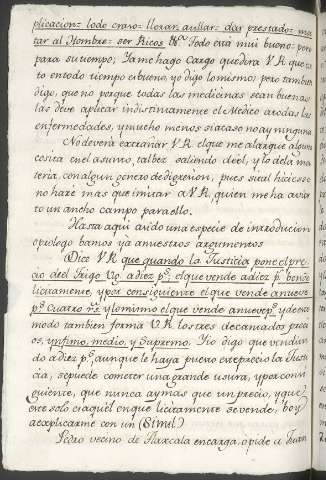 plicacion = lodo craso = lloran, aullar = dar prestado = ma
tar al Hombre = ser Ricos &c.ª Todo está mui bueno = pero
para su tiempo; Ya me hago Cargo que dira V.R. que es
to en todo tiempo es bueno, yo digo lo mismo; pero tambien
digo, que no porque todas las medicinas sean buenas
las deve aplicar indistintamente el Medico a todas las
enfermedades, y mucho menos si acaso no ay ninguna
No deverá extrañar V.R. el que me alargue alguna
cosita en el asunto, talbez saliendo de el, y lo de la ma
teria, con algun genero de digresion, pues si tal hiciesse
no haze mas que imitar a V.R. quien me ha avier
to un ancho campo para ello.
Hasta aqui a sido una especie de introduccion
o prologo bamos ya a nuestros argumentos
Dice V.R. que quando la Justicia pone el pre
cio del Trigo Vg. a diez p.s el que vende a diez p.s bende
licitamente, y por consiguiente el que vende a nueve
p.s cuatro r.s y lo mismo el que vende a nueve p.s y de este
modo tambien forma V.R. los tres decantados preci
os, ynfimo, medio, y Supremo. Yo digo que vendien
do a diez p.s aunque le haya puesto este precio la Justi
cia, se puede cometer una grande usura, y por consi
guiente, que nunca ay mas que un precio, y que
este solo es aquel en que licitamente se vende, boy
a explicarme con un (Simel)
Pedro vecino de Tlaxcala encarga, o pide a Juan